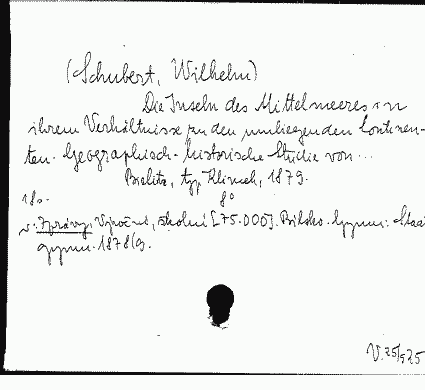 (Schubert, Wilhelm)
Die Inseln des Mittelmeeres in
ihrem Verhältnisse zu den umliegenden Continen-
ten. Geographisch-historische Studie von...
Bielitz, typ. Klimek, 1879.
18s. 8°
v. Zprávy. Výroční, školní [75.000]. Bílsko. Gymn. Staa
gymn. 1878/9.
V. 25/525